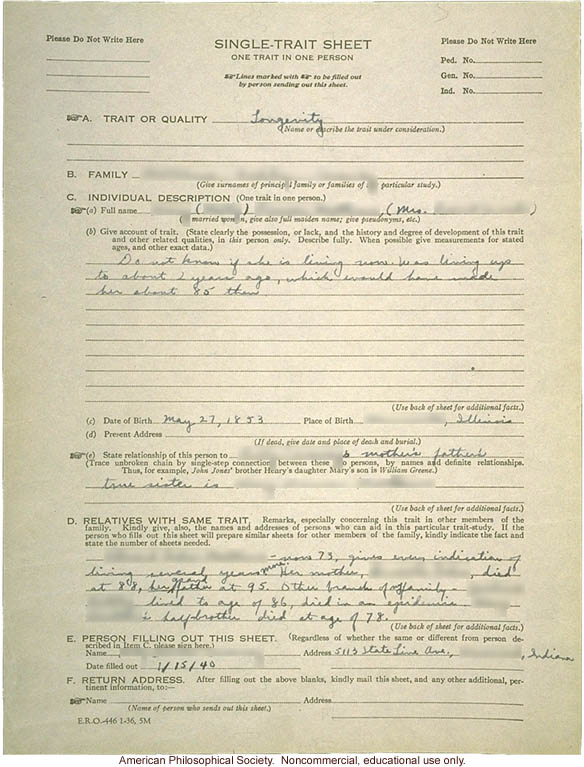 Please Do Not Write Here
SINGLE-TRAIT SHEET
ONE TRAIT IN ONE PERSON
☞Lines marked with ☞ to be filled out
by person sending out this sheet.
Please Do Not Write Here
Ped. No.
Gen. No.
Ind. No.
☞A. TRAIT OR QUALITY Longevity
(Name or describe the trait under consideration.)
B. FAMILY
(Give surnames of principal family or families of particular study.)
C. INDIVIDUAL DESCRIPTION (One trait in one person.)
☞(a) Full name ( ) , (Mrs. )
( married woman, give also full maiden name; give pseudonyms, etc.)
(b) Give account of trait. (State clearly the possession, or lack, and the history and degree of development of this trait
and other related qualities, in this person only. Describe fully. When possible give measurements for stated
ages, and other exact data.)
Do not know if she is living now. Was living up
to about 2 years ago, which would have made
her about 85 then
(Use back of sheet for additional facts.)
(c) Date of Birth May 27, 1853 Place of Birth , Illinois
(d) Present Address
(If dead, give date and place of death and burial.)
☞(e) State relationship of this person to mother's father
(Trace unbroken chain by single-step connection between these persons, by names and definite relationships.
Thus, for example, John Jones' brother Henry's daughter Mary's son is William Greene.)
true sister is
(Use back of sheet for additional facts.)
D. RELATIVES WITH SAME TRAIT, Remarks, especially concerning this trait in other members of the
family. Kindly give, also, the names and addresses of persons who can aid in this particular trait-study. If the
person who fills out this sheet will prepare similar sheets for other members of the family, kindly indicate the fact and
state the number of sheets needed.
- now 73, gives every indication of
living several years more. Her mother, , died
at 88, her grandfather at 95. Other branch of family -
lived to age of 86, died in an epidemic
half-brother died at age of 78.
(Use back of sheet for additional facts.)
E. PERSON FILLING OUT THIS SHEET. (Regardless of whether the same or different from person de-
scribed in Item C, please sign here.)
Name Address 5113 State Line Ave., , Indiana
Date filled out 1/15/40
F. RETURN ADDRESS. After filling out the above blanks, kindly mail this sheet, and any other additional, per-
tinent information, to:—
☞Name Address
(Name of person who sends out this sheet.)
E.R.O.-446 1-36, 5M
American Philosophical Society. Noncommercial, educational use only.